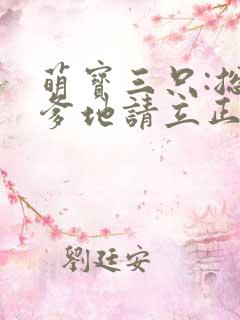 萌寶三只:總
爹地請立正
劉廷安